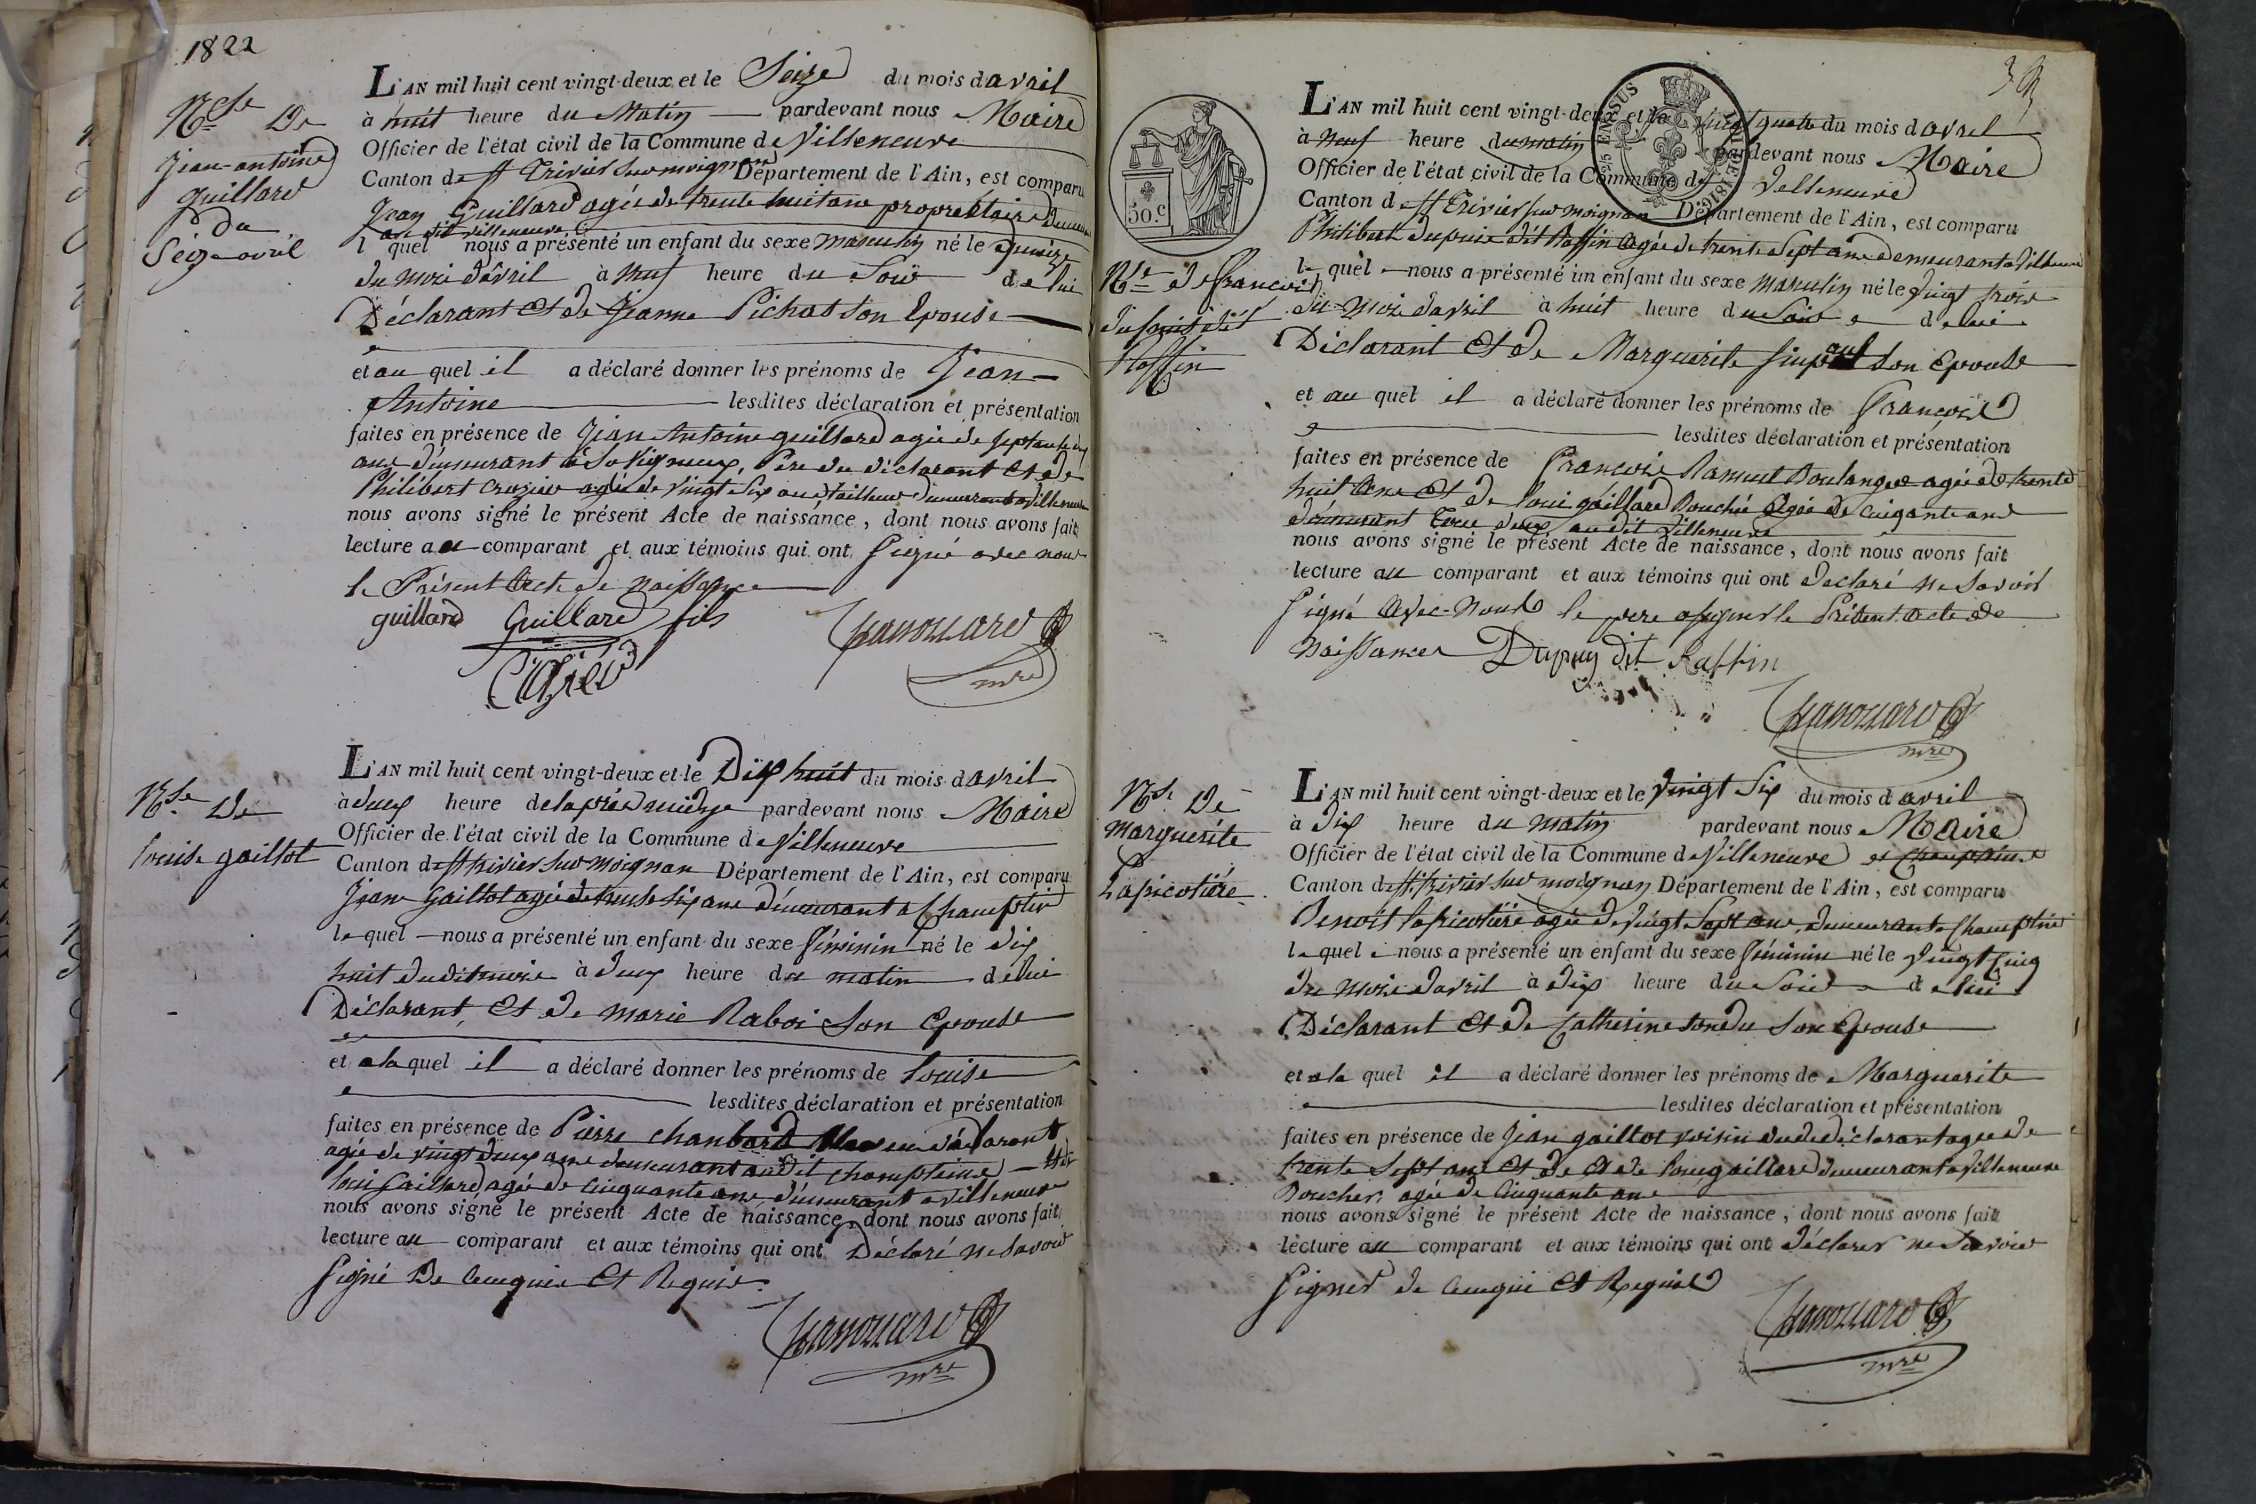 1822
Nce De
Jean-antoine
Guillard
du
Seize avril
L'AN mil huit cent vingt-deux et le Seize du mois davril
à huit heure du Matin pardevant nous Maire
Officier de l'état civil de la Commune de Villeneuve
Canton de St Trivier sur moignan Département de l'Ain, est comparu
Jean Guillard agée de trente huit ans propriétaire
au dit villeneuve
l quel nous a présenté un enfant du sexe masculin né le quinze
du mois d'avril à Neuf heure du Soir de lui
Déclarant et de Jeanne Pichat son Epouse
et au quel il a déclaré donner les prénoms de Jean
Antoine lesdites déclaration et présentation
faites en présence de Jean Antoine guillard agée de
ans demeurant à Savigneux, Père du déclarant et de
Philibert Crozier agée de vingt Six ans tailleur demeurant a Villeneuve
nous avons signé le présent Acte de naissance, dont nous avons fait
lecture au comparant et aux témoins qui ont Signé avec nous
le Présent Acte de Naissance
guillard Guillard fils
mre
Nse De
Louise gaillot
L'AN mil huit cent vingt-deux et le Dix huit du mois davril
à deux heure pardevant nous Maire
Officier de l'état civil de la Commune de Villeneuve
Canton de St trivier sur moignan Département de l'Ain, est comparu
Jean Gaillot agée de trente Six ans demeurant a
le quel nous a présenté un enfant du sexe féminin né le dix
huit dudit mois à deux heure du matin de lui
Déclarant et de marie Raboi Son Epouse
et a la quel il a déclaré donner les prénoms de Louise
lesdites déclaration et présentation
faites en présence de Pierre Chanbard
agée de vingt deux ans demeurant au dit
Loui Gaillard agée de Cinquante ans demeurant a villeneuve
nous avons signé le présent Acte de naissance, dont nous avons fait
lecture au comparant et aux témoins qui ont Déclaré ne Savoir
Signé De Cenquis et Requis
mre
50.c
L'AN mil huit cent vingt-deux et le vingt quatre du mois davril
à Neuf heure du matin pardevant nous Maire
Officier de l'état civil de la Commune de Villeneuve
Canton d St Trivier sur moignan Département de l'Ain, est comparu
Philibert dupuis dit Raffin agée de trente Sept ans demeurant a Villeneuve
Nse de francois
dupuis dit
Raffin
le quel nous a présenté un enfant du sexe masculin né le vingt trois
du mois davril à huit heure du Soir de lui
Déclarant et de Marguerite Son Epouse
et au quel il a déclaré donner les prénoms de François
lesdites déclaration et présentation
faites en présence de François Boulanger agée de trente
huit ans et de Loui gaillard Bouché agée de Cinquante ans
demeurant tous deux au dit Villeneuve
nous avons signé le présent Acte de naissance, dont nous avons fait
lecture au comparant et aux témoins qui ont declaré ne Savoir
Signé Avec Nous le pere a signer le Présent acte de
Naissance Dupuy dit Raffin
mre
Nse De
Marguerite
Lapicotière
L'AN mil huit cent vingt-deux et le vingt Six du mois d avril
à dix heure du matin pardevant nous Maire
Officier de l'état civil de la Commune de Villeneuve
Canton de St trivier sur moignan Département de l'Ain, est comparu
Benoit lapicotière agée de vingt Sept ans, demeurant a
le quel nous a présenté un enfant du sexe féminin né le vingt cinq
du mois davril à dix heure du Soir de lui
Déclarant et de Catherine tondu Son Epouse
et a la quel il a déclaré donner les prénoms de Marguerite
lesdites déclaration et présentation
faites en présence de Jean gaillot voisin du dit déclarant agée de
trente Sept ans et de et de Loui gaillard demeurant a villeneuve
Boucher, agée de Cinquante ans
nous avons signé le présent Acte de naissance, dont nous avons fait
lecture au comparant et aux témoins qui ont déclarer ne Savoir
Signer de Cenquis et Requis
mre